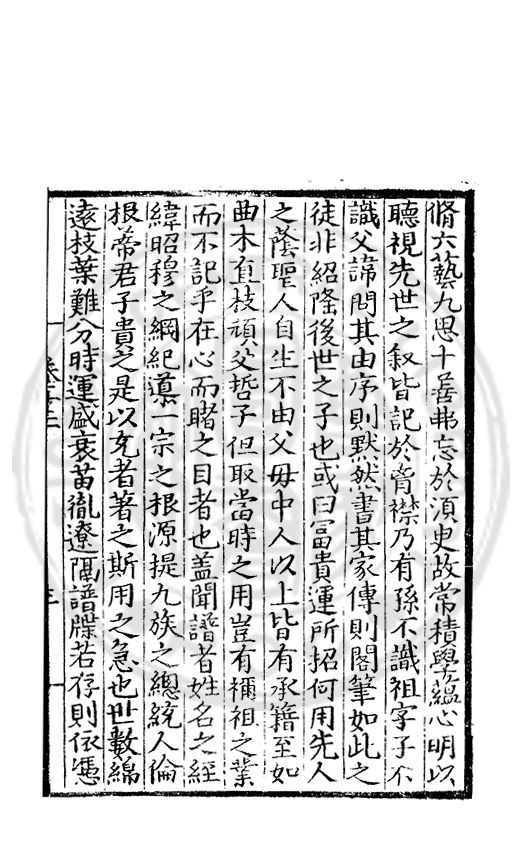 脩六藝九思十善弗忘於湏臾故常積學緼心明以
聽視先世之叙皆記於胷襟乃有孫不識祖字子不
識父諱問其由序則默然書其家傳則閣筆如此之
徒非紹隆後世之子也或曰冨貴運所招何用先人
之蔭聖人自生不由父毋中人以上皆有承籍至如
曲木直枝頑父哲子但取當時之用豈有禰祖之業
而不記乎在心而睹之目者也盖聞譜者姓名之經
緯昭穆之綱紀遵一宗之根源提九族之總統人倫
根蔕君子貴之是以充者著之斯用之急也世數綿
逺枝葉難分時運盛衰苗㣧遼隔譜牒若存則依憑